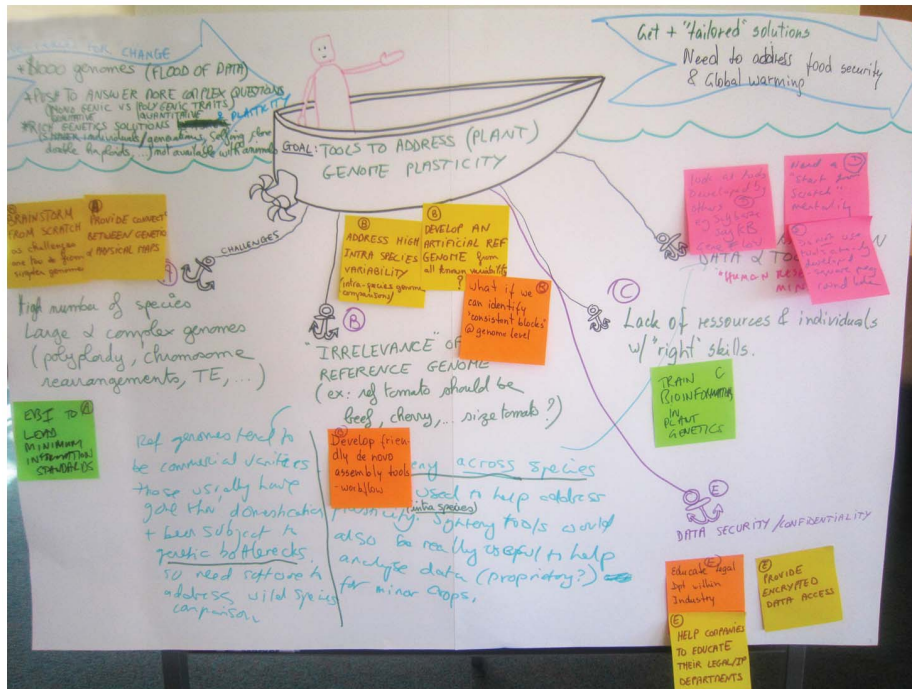 FOR CHANGE
+ $1000 genomes (FLOOD OF DATA)
* POST TO ANSWER MORE COMPLEX QUESTIONS
(MONOGENIC VS POLYGENIC TRAITS)
QUALITATIVE QUANTITATIVE & PLASTICITY
* RICH GENETICS SOLUTIONS
individuals/generation, Selfing, clone
double haploids, ... not available with animals
Get + "tailored" solutions
Need to address food security
& Global warming
GOAL: TOOLS TO ADDRESS (PLANT)
GENOME PLASTICITY
CHALLENGES
BRAINSTORM
FROM SCRATCH
as challenges
are too from
simpler genomes
A
PROVIDE
BETWEEN GENETIC
& PHYSICAL MAPS
A
High number of species
Large & complex genomes
(polyploidy, chromosome
rearrangements, TE, ...)
EBI TO A
LEAD
MINIMUM
INFORMATION
STANDARDS
B
ADDRESS HIGH
INTRA SPECIES
VARIABILITY
(intra-species genome
comparisons)
B
DEVELOP AN
ARTIFICIAL REF
GENOME from
all known variability
?
B
What if we
can identify
"consistent blocks"
@ genome level
B
"IRRELEVANCE" OF
REFERENCE GENOME
(ex: ref tomato should be
beef, cherry, ... size tomato?)
Ref genomes tend to
be commercial varieties
those usually have
gone thru domestication
+ been subject to
genetic bottlenecks.
so need software to
address wild species
comparison.
Develop frien-
dly de novo
assembly tools
- workflow
across species
used to help address
(intra species)
plasticity. Synteny tools would
also be really useful to help
analyse data (proprietary?)
for minor crops.
Look at tools
developed by
others
Need a
"Start from
Scratch"
mentality
DATA & TOO
C
Lack of ressources & individuals
w/ "right" skills.
TRAIN C
BIOINFORMATICIANS
IN
PLANT
GENETICS
E
DATA SECURITY/CONFIDENTIALITY
E
Educate legal
Dpt within
Industry
E
PROVIDE
ENCRYPTED
DATA ACCESS
E
HELP COMPANIES
TO EDUCATE
THEIR LEGAL/IP
DEPARTMENTS